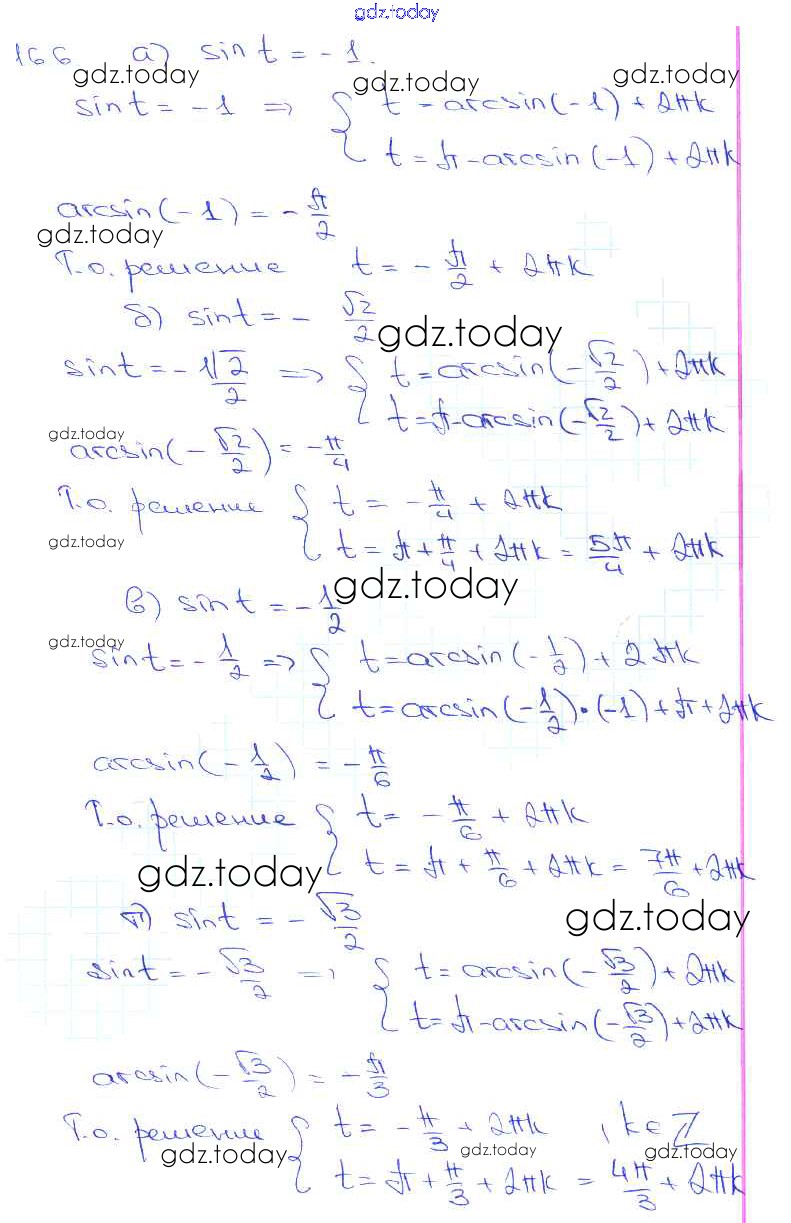 gdz.today
166 а) sin t = -1.
gdz.today gdz.today gdz.today
sin t = -1 => { t = arcsin(-1) + 2πk
t = π - arcsin(-1) + 2πk
arcsin(-1) = -π/2
gdz.today
Т.о. решение t = -π/2 + 2πk
б) sin t = - √2/2
gdz.today
sin t = -√2/2 => { t = arcsin(-√2/2) + 2πk
t = π - arcsin(-√2/2) + 2πk
gdz.today
arcsin(-√2/2) = -π/4
Т.о. решение { t = -π/4 + 2πk
gdz.today
t = π + π/4 + 2πk = 5π/4 + 2πk
gdz.today
в) sin t = -1/2
gdz.today
sin t = -1/2 => { t = arcsin(-1/2) + 2πk
t = arcsin(-1/2)·(-1) + π + 2πk
arcsin(-1/2) = -π/6
Т.о. решение { t = -π/6 + 2πk
t = π + π/6 + 2πk = 7π/6 + 2πk
gdz.today
г) sin t = -√3/2
gdz.today
sin t = -√3/2 => { t = arcsin(-√3/2) + 2πk
t = π - arcsin(-√3/2) + 2πk
arcsin(-√3/2) = -π/3
Т.о. решение { t = -π/3 + 2πk , k ∈ Z
gdz.today gdz.today gdz.today
t = π + π/3 + 2πk = 4π/3 + 2πk